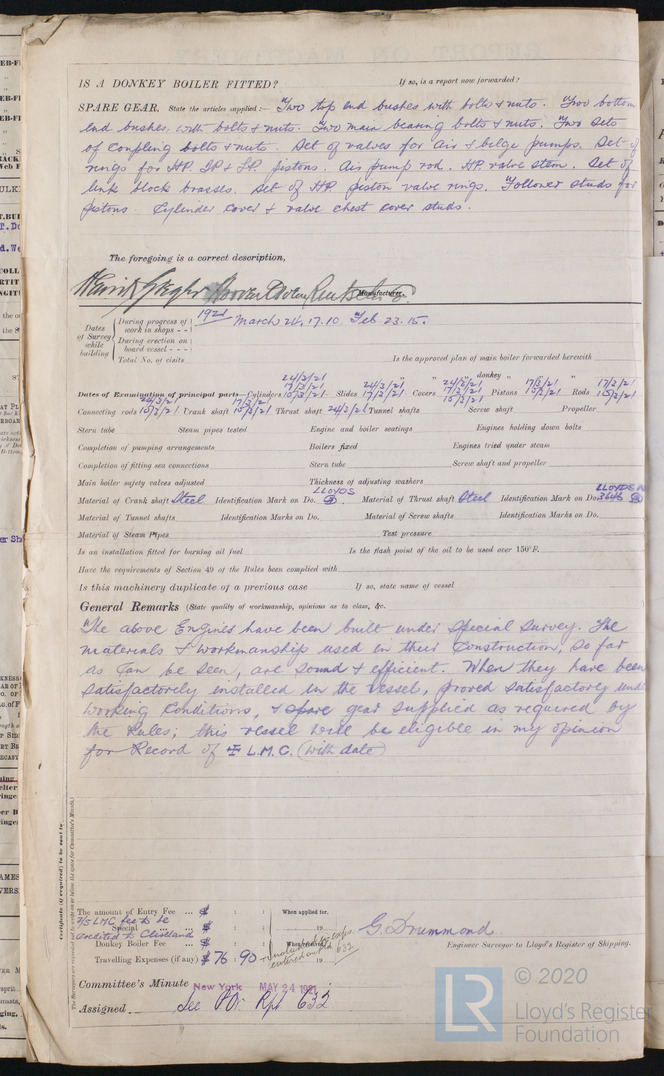 IS A DONKEY BOILER FITTED? If so, is a report now forwarded?
SPARE GEAR. State the articles supplied:— Two top end bushes with bolts & nuts. Two bottom
end bushes, with bolts & nuts. Two main bearing bolts & nuts. Two sets
of coupling bolts & nuts. Set of valves for air & belge pumps. Set of
rings for HP. IP & LP. pistons. Air pump rod. HP. valve stem. Set of
link block brasses. Set of HP piston valve rings. Follower studs for
pistons. Cylinder cover & valve chest cover studs.
The foregoing is a correct description,
Manufacturer.
Dates of Survey while building
During progress of work in shops - - 1921 March 24, 17. 10. Feb 23. 15.
During erection on board vessel - - -
Total No. of visits Is the approved plan of main boiler forwarded herewith
" " donkey " "
Dates of Examination of principal parts—Cylinders 24/3/21 17/3/21 10/3/21 Slides 24/3/21 17/3/21 Covers 24/3/21 17/3/21 10/3/21 Pistons 17/3/21 10/3/21 Rods 17/3/21 10/3/21
Connecting rods 24/3/21 10/3/21 Crank shaft 17/3/21 10/3/21 Thrust shaft 24/3/21 Tunnel shafts Screw shaft Propeller
Stern tube Steam pipes tested Engine and boiler seatings Engines holding down bolts
Completion of pumping arrangements Boilers fixed Engines tried under steam
Completion of fitting sea connections Stern tube Screw shaft and propeller
Main boiler safety valves adjusted Thickness of adjusting washers
Material of Crank shaft Steel Identification Mark on Do. LLOYDS Material of Thrust shaft Steel Identification Mark on Do. LLOYDS 3646
Material of Tunnel shafts Identification Marks on Do. Material of Screw shafts Identification Marks on Do.
Material of Steam Pipes Test pressure
Is an installation fitted for burning oil fuel Is the flash point of the oil to be used over 150°F.
Have the requirements of Section 49 of the Rules been complied with
Is this machinery duplicate of a previous case If so, state name of vessel
General Remarks (State quality of workmanship, opinions as to class, &c.
The above Engines have been built under Special Survey. The
materials & workmanship used in their construction, so far
as can be seen, are sound & efficient. When they have been
satisfactorily installed in the vessel, proved satisfactory under
working conditions, & spare gear supplied as required by
the Rules; this vessel will be eligible in my opinion
for Record of L.M.C. (with date)
Certificate (if required) to be sent to
The amount of Entry Fee ... $ : : When applied for,
2/5 LMC fee to be
Special ... $ : : 19
credited to Cleveland
Donkey Boiler Fee ... $ : : When received,
Travelling Expenses (if any) $ 76 : 90 19
G. Drummond
Engineer Surveyor to Lloyd's Register of Shipping.
Committee's Minute New York MAY 24 1921
Assigned See PO. Rpt 632
© 2020
LR
Lloyd's Register
Foundation